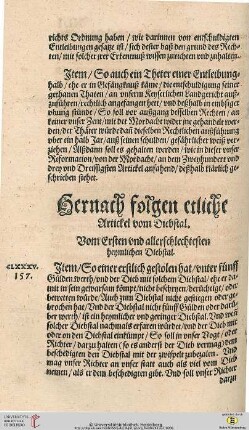 richts Ordnung haben / wie darinnen von entschuldigten
Entleibungen gesatzt ist / sich dester baß den grund des Rech-
ten / mit solcher jrer Erkenntnuß wissen zurichten und zuhalten.
Item / So auch ein Theter einer Entleibung-
halb / ehe er in Gefängknuß käme / die entschuldigung seiner
gethanen Thaten / an unserm Keyserlichen Landtgericht auß-
zuführen / rechtlich angefangen hett / und deßhalb in embsiger
ubung stünde / So soll vor außgang desselben Rechten / an
keiner unser Zent / wie mit der Mordacht wider jne gehandelt wer-
den / der Thäter würde daß dieselben Rechtlichen außführung
uber ein Jar / auß seinen schulden / gefährlicher weiß verzie-
hen / Alßdann soll es gehalten werden / wie in dieser unser
Reformation / von der Mordacht / an dem Zweyhundert und
drey und Dreissigsten Artickel anfahend / deßhalb klärlich ge-
schrieben stehet.
Hernach folgen etliche
Artickel vom Diebstal.
Vom Ersten und allerschlechtesten
heymlichen Diebstal.
CLXXXV.
157.
Item / So einer erstlich gestolen hat / unter fünff
Gülden werth / und der Dieb mit solchem Diebstal / ehe er da-
mit in sein gewarsam kömpt / nicht beschryen / berüchtiget / oder
betretten würde / Auch zum Diebstal nicht gestiegen oder ge-
brochen hat / Und der Diebstal nicht fünff Gülden oder dar
uber werth / ist ein heymlicher und geringer Diebstal. Und wen
solcher Diebstal nachmals erfaren würde / und der Dieb mit
oder on den Diebstal einkömpt / So soll jn unser Vogt / oder
Richter / darzu halten (so es anderst der Dieb vermag) dem
beschedigten den Diebstal mit der zwöspelt zubezalen. Und
soll unser Richter an unser statt auch als viel vom Dieb
nemen / als er dem beschedigten gibt. Und soll unser Richter
darzu
UNIVERSITÄTS-
BIBLIOTHEK
HEIDELBERG
Universitätsbibliothek Heidelberg